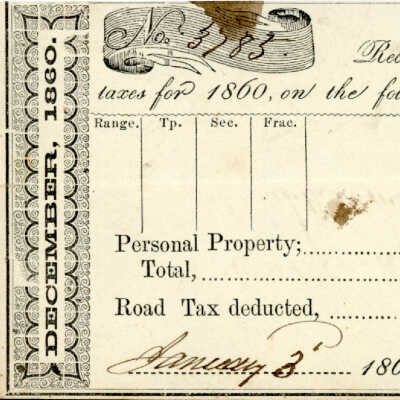 DECEMBER, 1860.
No. 3783.
Rec
taxes for 1860, on the fol
Range. Tp. Sec. Frac.
Personal Property;
Total,
Road Tax deducted,
January 3 186